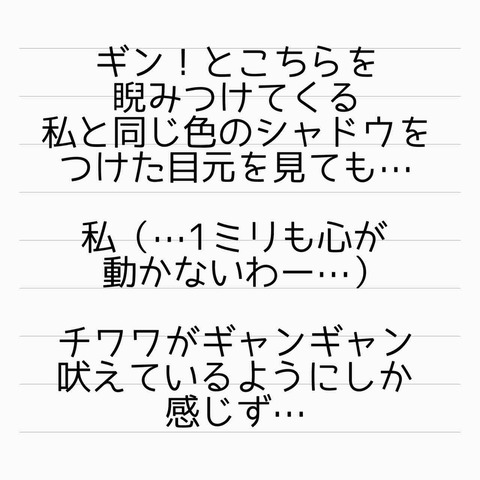 ギン！とこちらを
睨みつけてくる
私と同じ色のシャドウを
つけた目元を見ても…
私（…1ミリも心が
動かないわー…）
チワワがギャンギャン
吠えているようにしか
感じず…